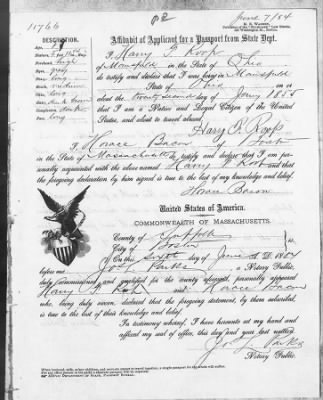 June 7/84
11766
DESCRIPTION.
Affidavit of Applicant for a Passport from State Dept.
I, Harry R Rook
of Mansfield in the State of Ohio
do testify and declare that I was born in Mansfield
Ohio on or
about the twenty second day of Jany 1855
that I am a Native and Legal Citizen of the United
States, and about to travel abroad.
Harry R. Rook
I, Horace Bacon of Boston
in the State of Massachusetts do testify and declare that I am per-
sonally acquainted with the above named Harry R Rook and that
the foregoing declaration by him signed is true to the best of my knowledge and belief.
Horace Bacon
high
gray
medium
long
dark brown
dark
long
United States of America.
COMMONWEALTH OF MASSACHUSETTS.
County of Suffolk
City of Boston
On this Sixth day of June A.D. 1884
before me Jos. L. Parks a Notary Public,
duly commissioned, and qualified for the county aforesaid, personally appeared
Harry R. Rook and Horace Bacon
who, being duly sworn, declared that the foregoing statement, by them subscribed,
is true to the best of their knowledge and belief.
In testimony whereof, I have hereunto set my hand and
official my seal of office, this day and year last written.
Jos L Parks
Notary Public.